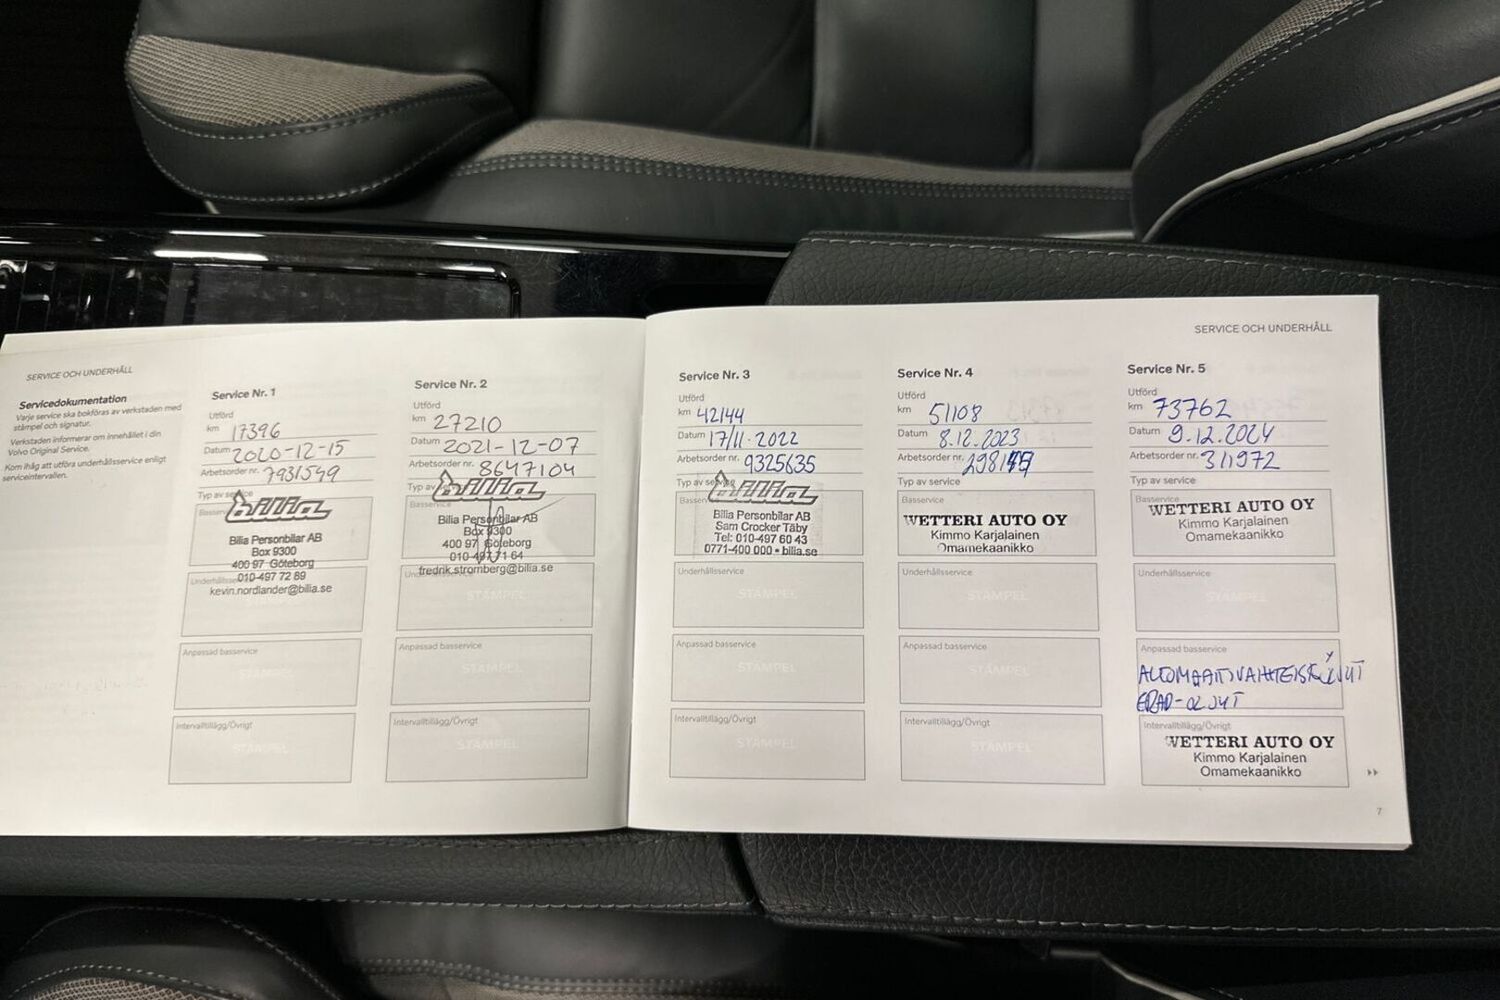 SERVICE OCH UNDERHÅLL
Servicedokumentation
Varje service ska bokföras av verkstaden med
stämpel och signatur.
Verkstaden informerar om innehållet i din
Volvo Original Service.
Kom ihåg att utföra underhållsservice enligt
serviceintervallen.
Service Nr. 1
Utförd
km 17396
Datum 2020-12-15
Arbetsorder nr. 7931549
Typ av service
Basservice
bilia
Bilia Personbilar AB
Box 9300
400 97 Göteborg
Underhållsservice
010-497 72 89
kevin.nordlander@bilia.se
STÄMPEL
Anpassad basservice
STÄMPEL
Intervalltillägg/Övrigt
STÄMPEL
Service Nr. 2
Utförd
km 27210
Datum 2021-12-07
Arbetsorder nr. 8647104
Typ av
Basservice
bilia
Bilia Personbilar AB
Box 9300
400 97 Göteborg
010-497 71 64
fredrik.stromberg@bilia.se
STÄMPEL
Anpassad basservice
STÄMPEL
Intervalltillägg/Övrigt
STÄMPEL
SERVICE OCH UNDERHÅLL
Service Nr. 3
Utförd
km 42144
Datum 17/11-2022
Arbetsorder nr. 9325635
Typ av service
bilia
Bilia Personbilar AB
Sam Crocker Täby
Tel: 010-497 60 43
0771-400 000 • bilia.se
Underhållsservice
STÄMPEL
Anpassad basservice
STÄMPEL
Intervalltillägg/Övrigt
STÄMPEL
Service Nr. 4
Utförd
km 51108
Datum 8.12.2023
Arbetsorder nr.
Typ av service
Basservice
WETTERI AUTO OY
Kimmo Karjalainen
Omamekaanikko
Underhållsservice
STÄMPEL
Anpassad basservice
STÄMPEL
Intervalltillägg/Övrigt
STÄMPEL
Service Nr. 5
Utförd
km 73762
Datum 9.12.2024
Arbetsorder nr. 311972
Typ av service
Basservice
WETTERI AUTO OY
Kimmo Karjalainen
Omamekaanikko
Underhållsservice
STÄMPEL
Anpassad basservice
ERAD-ÖLJYT
Intervalltillägg/Övrigt
WETTERI AUTO OY
Kimmo Karjalainen
Omamekaanikko
7